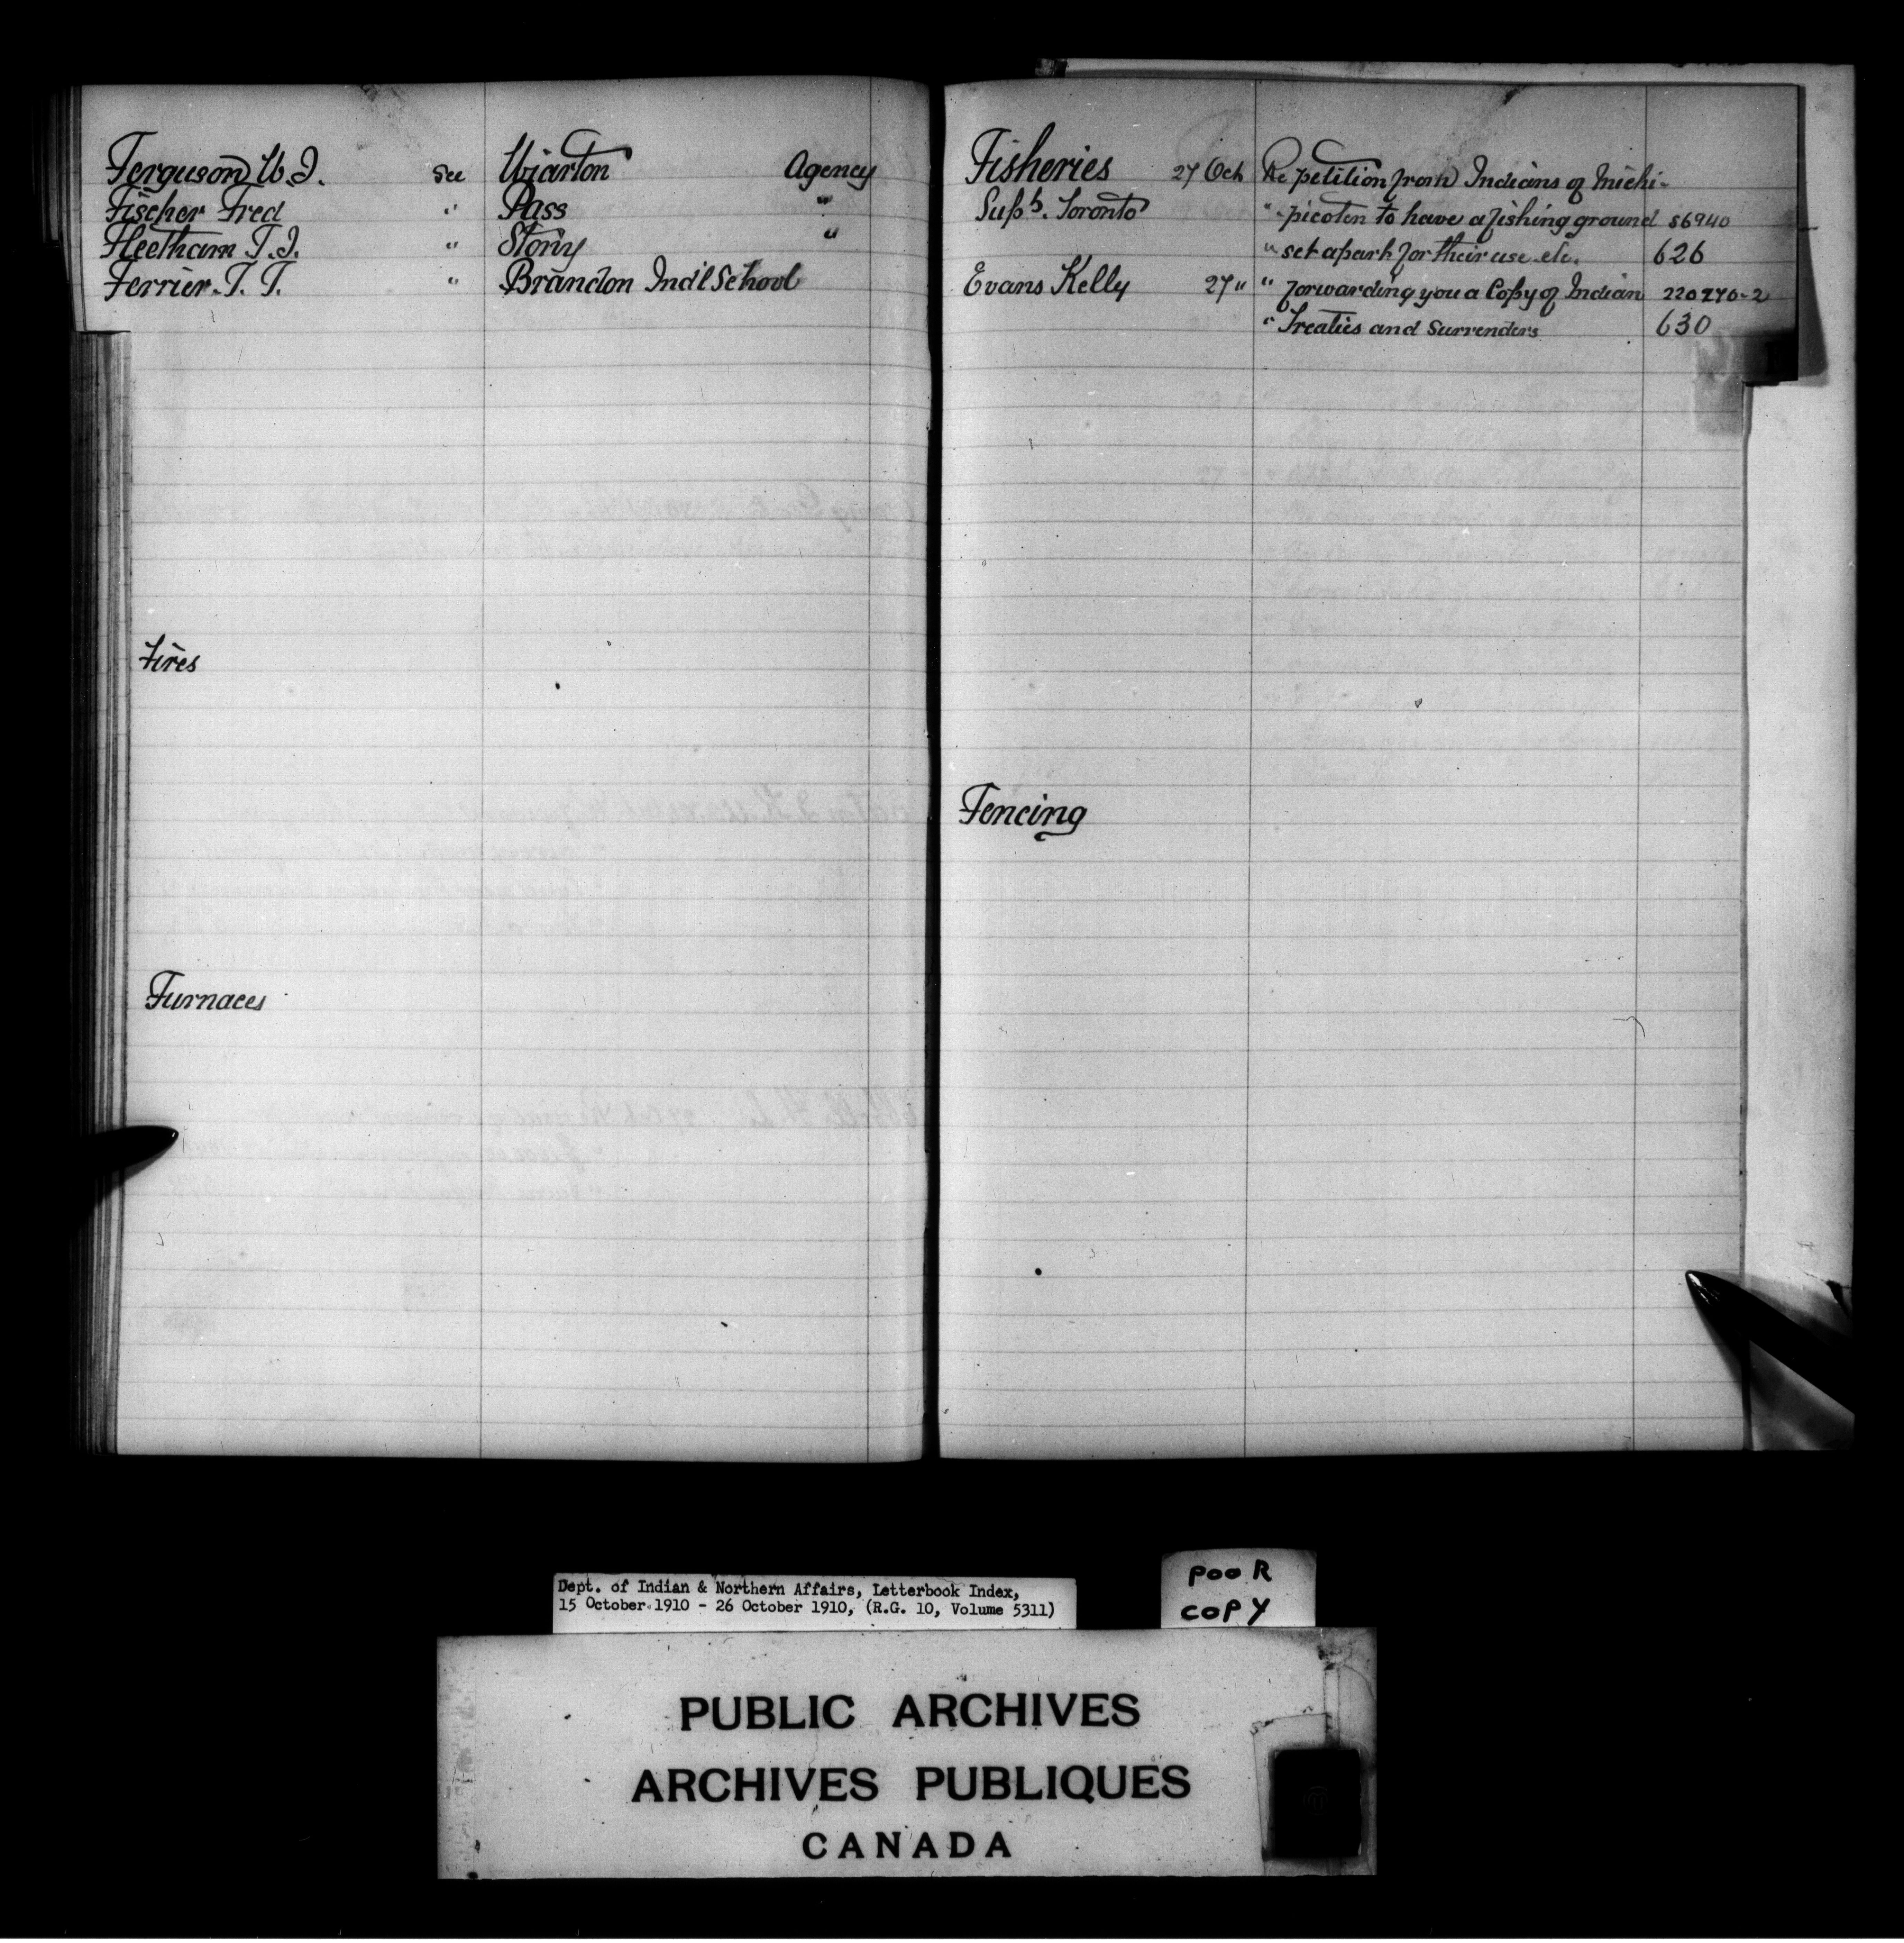 Ferguson W.J. See Wiarton Agency
Fischer Fred " Pass "
Fleetham T.J. " Stony "
Ferrier. T. T. " Brandon Ind'l School
Fires
Furnaces
Fisheries 27 Oct Re petition from Indians of Michi-
Supt. Toronto " picoten to have a fishing ground 56940
" set apart for their use etc. 626
Evans Kelly 27 " " forwarding you a Copy of Indian 220270-2
" Treaties and Surrenders 630
Fencing
Dept. of Indian & Northern Affairs, Letterbook Index,
15 October 1910 - 26 October 1910, (R.G. 10, Volume 5311)
POOR
COPY
PUBLIC ARCHIVES
ARCHIVES PUBLIQUES
CANADA